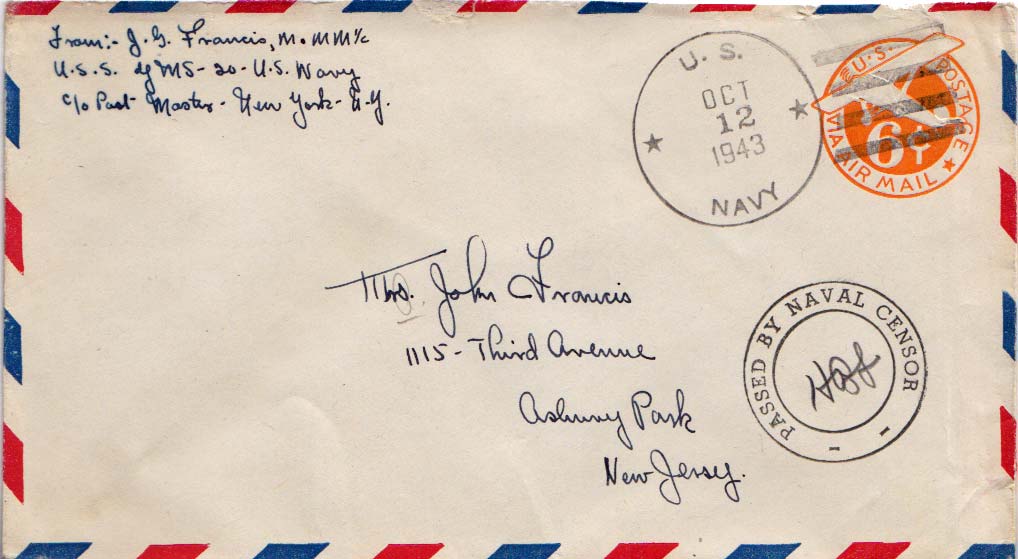 From:- J. G. Francis, M.M.M 1/c
U.S.S. YMS-20-U.S. Navy
c/o Post Master-New York-N.Y.
U.S.
OCT
12
1943
NAVY
U.S. POSTAGE
6¢
VIA AIR MAIL
Mrs. John Francis
1115-Third Avenue
Asbury Park
New Jersey.
PASSED BY NAVAL CENSOR